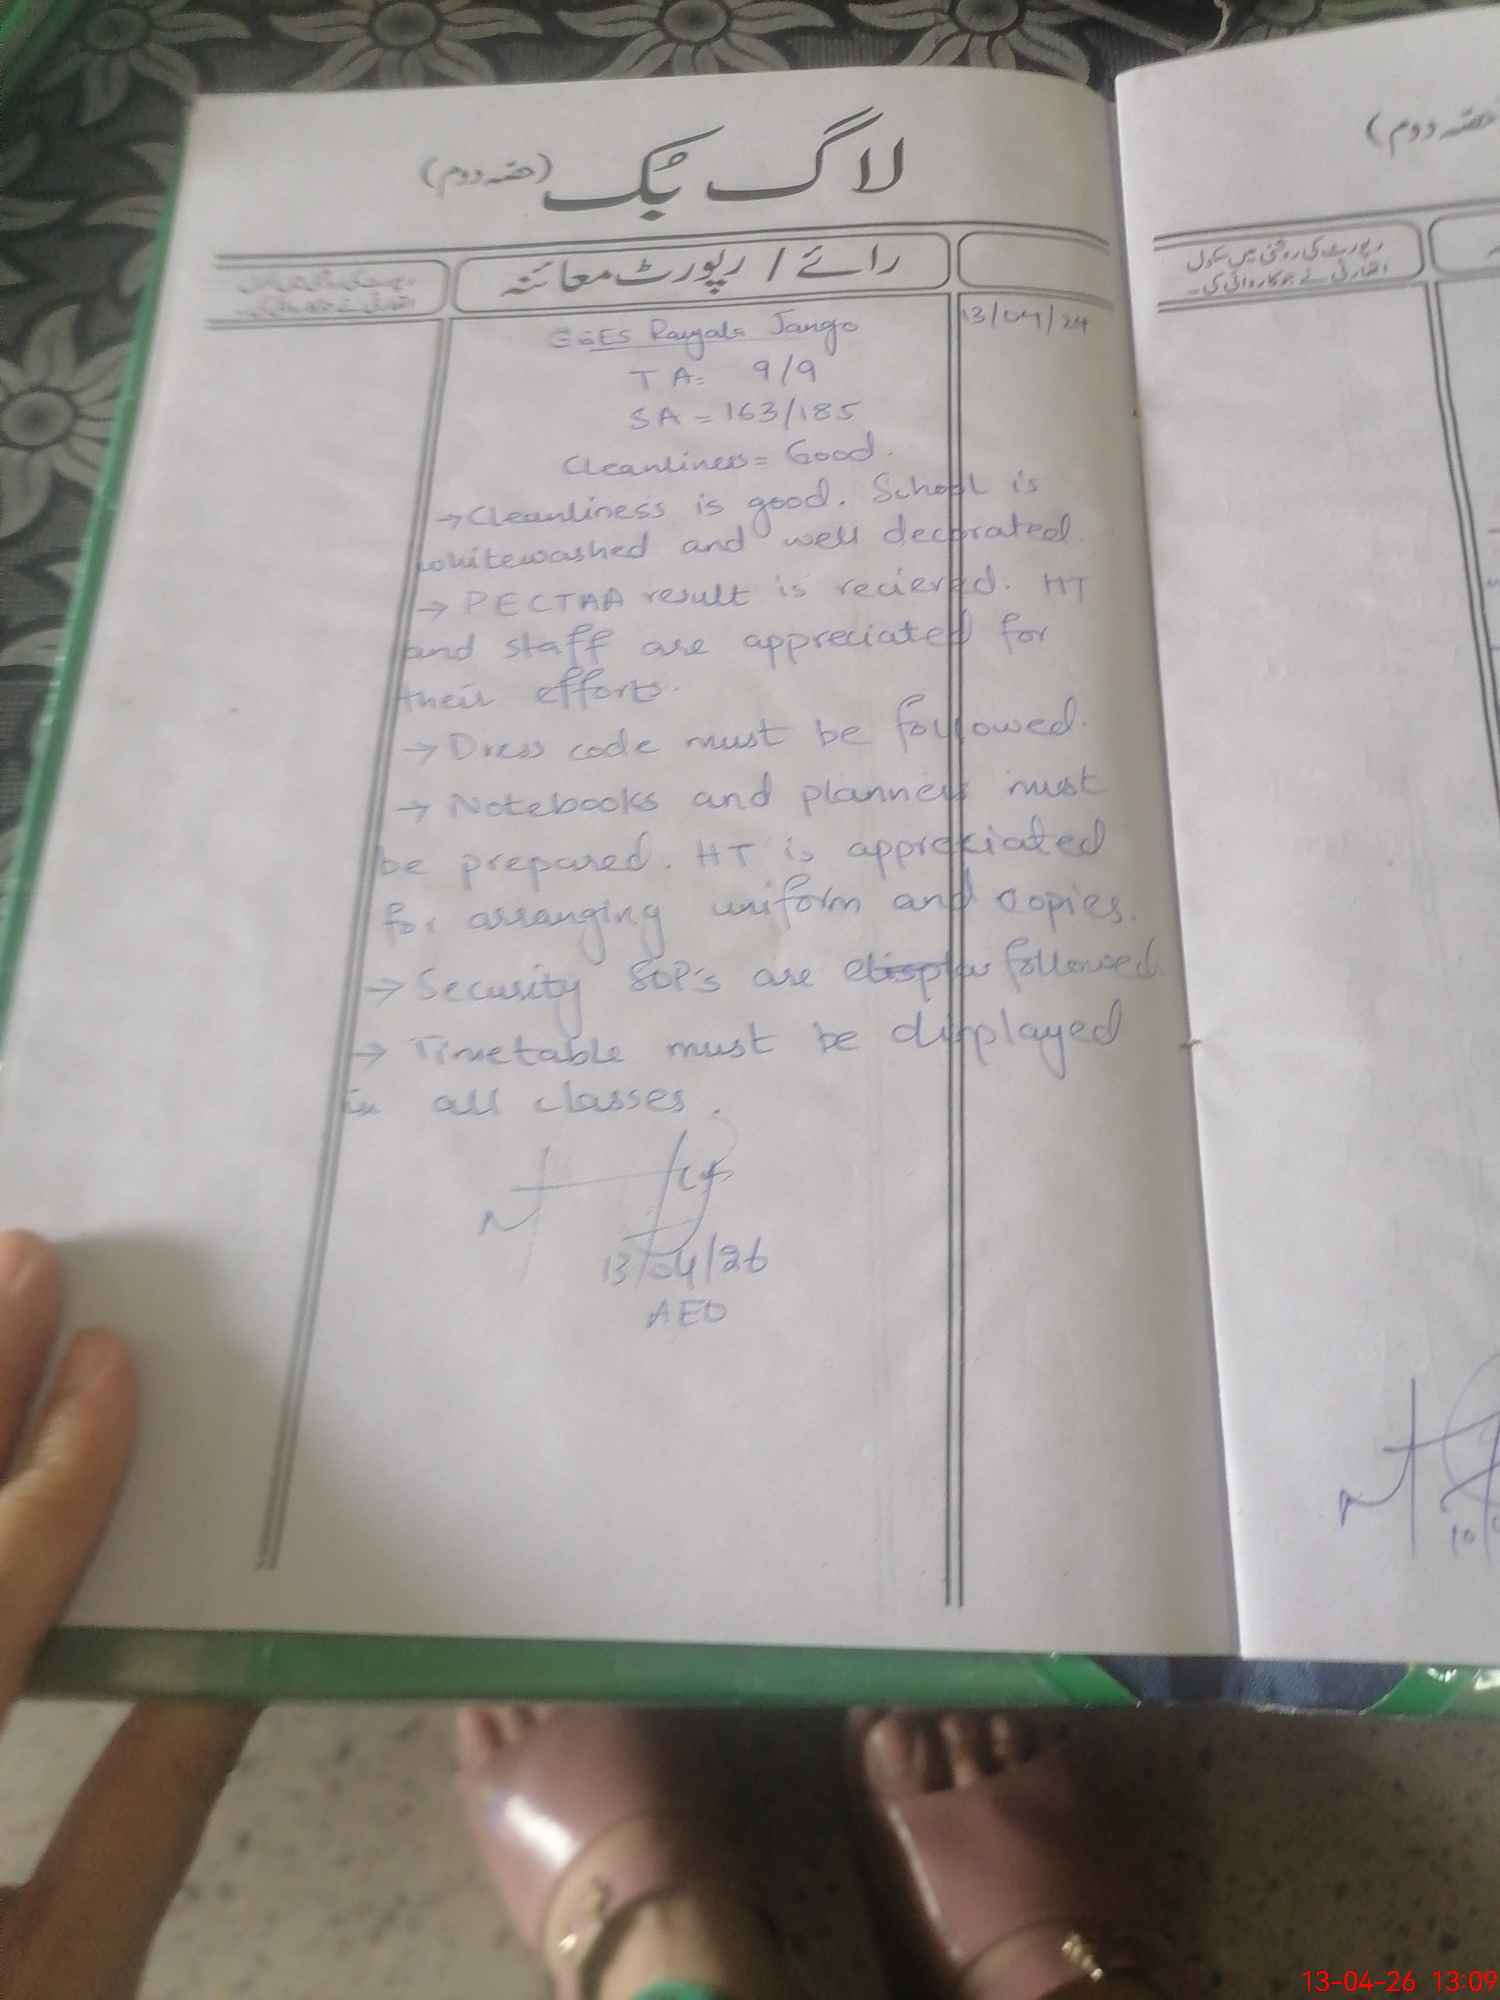 لاگ بُک (حصّہ دوم)
رائے / رپورٹ معائنہ
رپورٹ کی روشنی میں سکول
اتھارٹی نے جو کاروائی کی۔
13/04/24
GGES Jango
TA= 9/9
SA = 163/185
Cleanliness = Good.
→ Cleanliness is good. School is
whitewashed and well decorated.
→ PECTAA result is recieved. HT
and staff are appreciated for
their efforts.
→ Dress code must be followed.
→ Notebooks and planners must
be prepared. HT is appreciated
for arranging uniform and copies.
→ Security SOP's are followed
→ Timetable must be displayed
in all classes.
13/04/26
AEO
حصّہ دوم)
رپورٹ کی روشنی میں سکول
اتھارٹی نے جو کاروائی کی۔
13-04-26 13:09